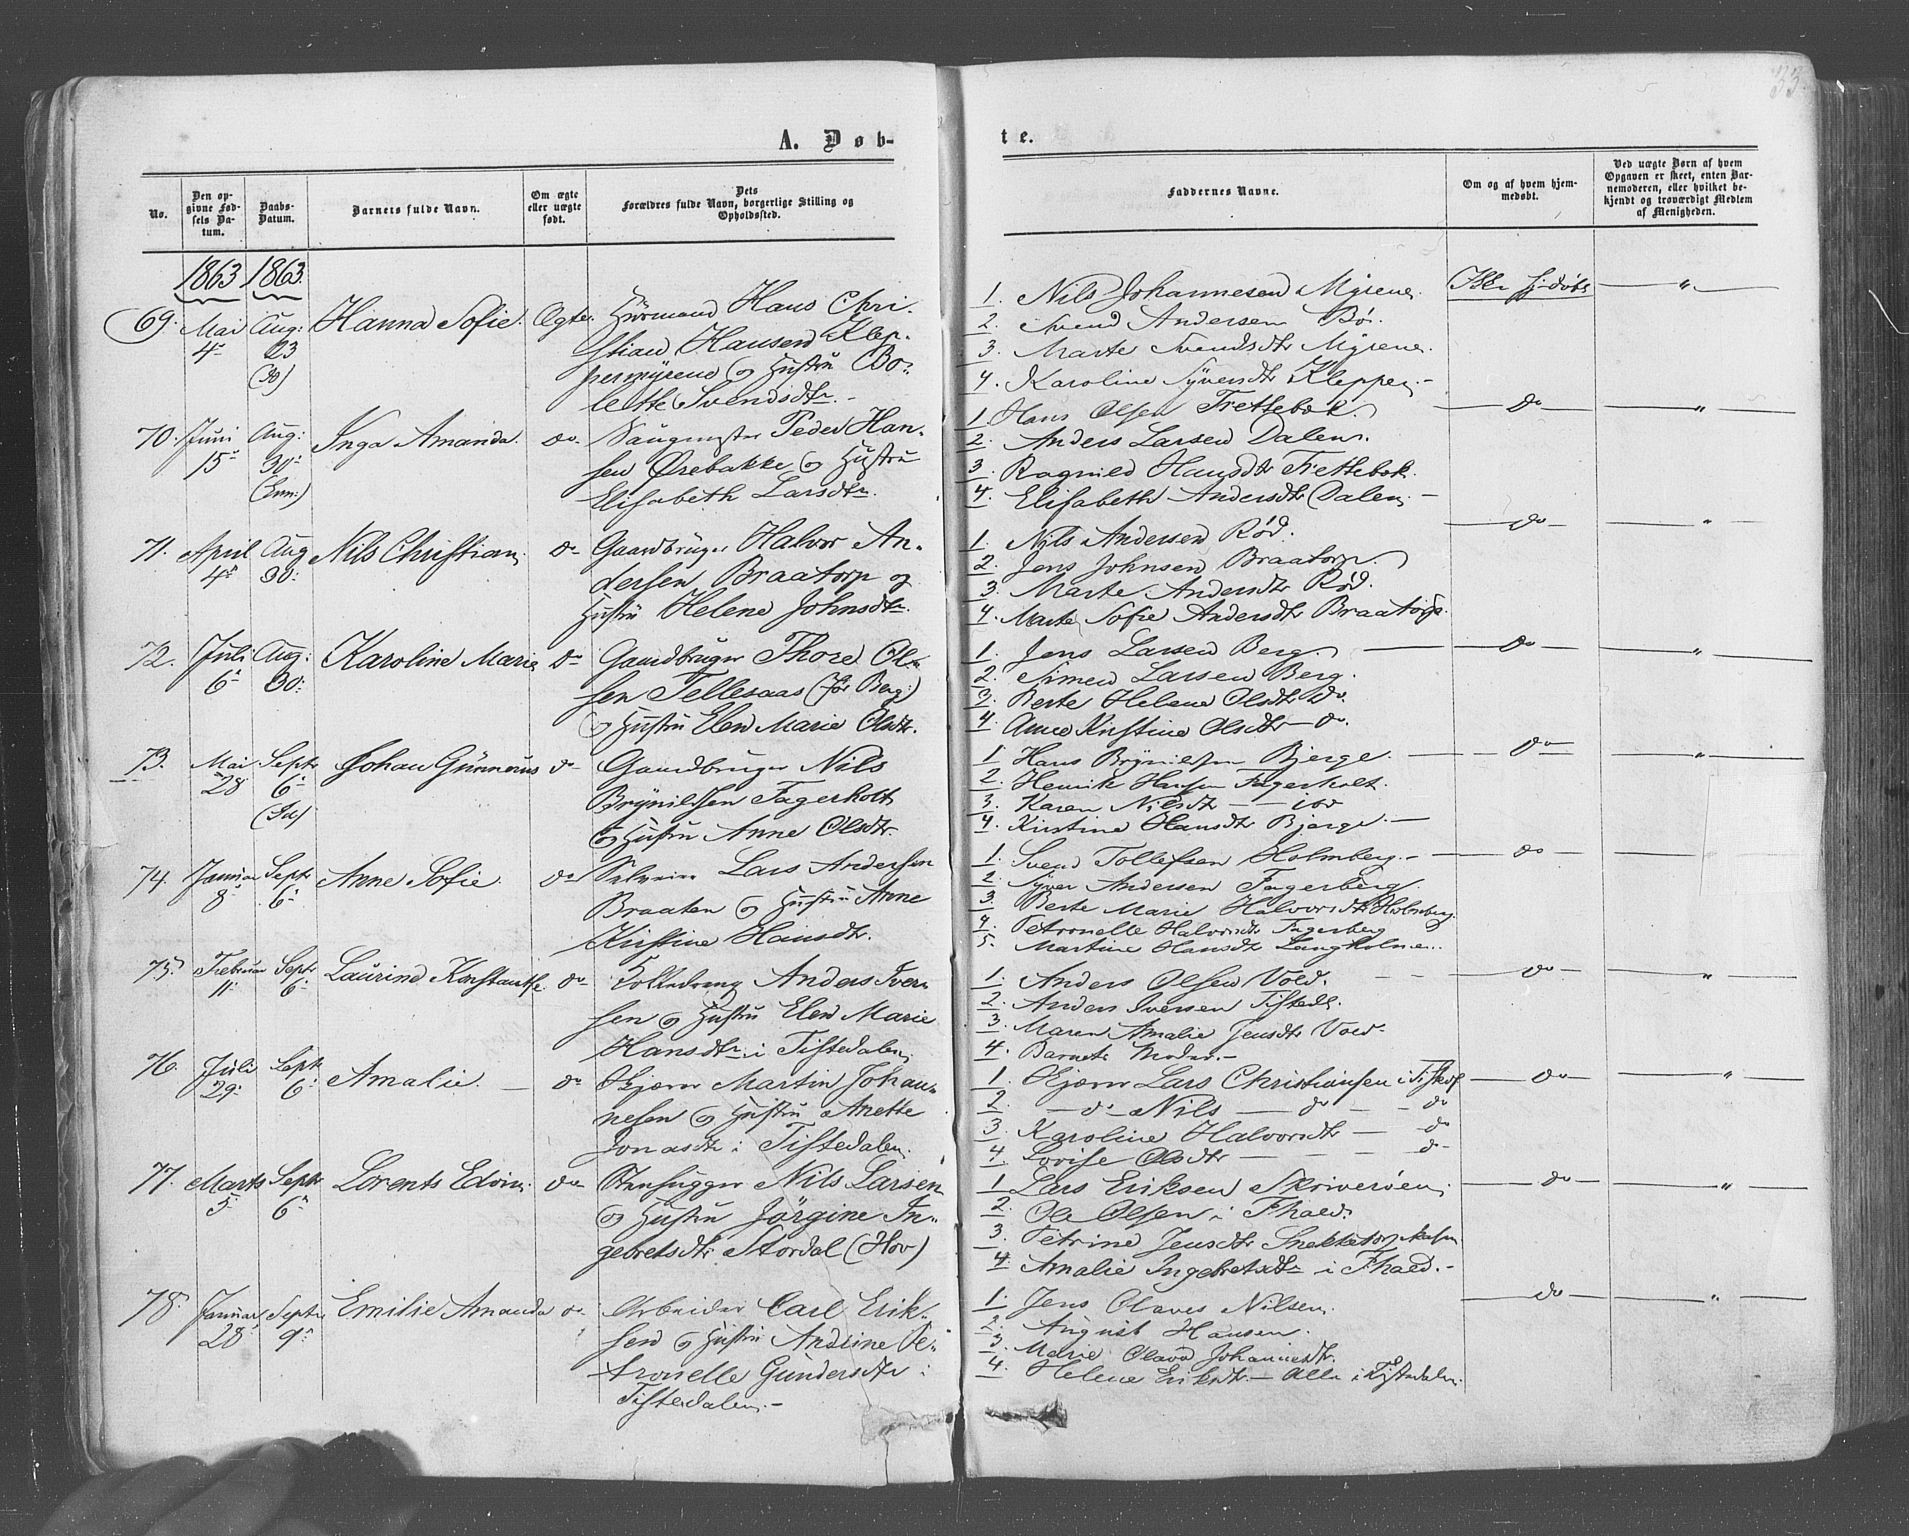 33.
A. Døb-
te.
No.
Den op-
givne Fød-
sels Da-
tum.
Daabs-
Datum.
Barnets fulde Navn.
Om ægte
eller uægte
født.
Dets
Forældres fulde Navn, borgerlige Stilling og
Opholdssted.
Faddernes Navne.
Om og af hvem hjem-
medøbt.
Ved uægte Børn af hvem
Opgaven er skeet, enten Bar-
nemoderen, eller hvilket be-
kjendt og troværdigt Medlem
af Menigheden.
1863 1863.
69. Mai Aug: Hanna Sofie. Ægte. Huusmand Hans Chri-
4de 23 stian Hansen Klep-
permyrene og Hustru Bo-
lette Svendsdtr.
1. Nils Johannesen Myrene. Ikke hjdøbt "
2. Svend Andersen Bø.
3. Marte Svendsdtr Myrene.
4. Karoline Syversdtr Kleppen.
70. Juni Aug: Inga Amanda. do. Saugmester Peder Han-
15de 30: sen Ørebakke og Hustru
Elisabeth Larsdtr.
1 Hans Olsen Trettebok. do "
2. Anders Larsen Dalen.
3. Ragnild Hansdtr Trettebok.
4. Elisabeth Andersdtr Dalen.
71. April Aug Nils Christian. do Gaardbruger Halvor An-
4de 30: dersen Braatorp og
Hustru Helene Johnsdtr.
1. Nils Andersen Rød. do "
2. Jens Johnsen Braatorp.
3. Marte Andersdtr Rød.
4. Marte Sofie Andersdtr Braatorp.
72. Juli Aug: Karoline Marie do Gaardbruger Thore Ol-
6de 30: sen Tellesaas (før Berg)
og Hustru Elen Marie Olsdtr.
1. Jens Larsen Berg. do "
2. Simen Larsen Berg.
3. Berte Helene Olsdtr do.
4. Anne Kirstine Olsdtr do.
73. Mai Septr Johan Gunnerus do Gaardbruger Nils
28 6te Brynildsen Fagerholt
og Hustru Anne Olsdtr.
1. Hans Brynildsen Bjerge. do "
2. Henrik Hansen Fagerholt.
3. Karen Nilsdtr
4. Kirstine Hansdtr Bjerge.
74. Januar Septr Anne Sofie. do Selveier Lars Andersen
8de 6te Braaten og Hustru Anne
Kirstine Hansdtr.
1. Svend Tollefsen Holmberg. do
2. Syver Andersen Fagerberg.
3. Berte Marie Halvorsdtr Holmberg.
4. Petronelle Halvorsdtr Fagerberg
5. Martine Hansdtr Langholmen.
75. Februar Septr Laurine Konstantse. do Anders Iver-
11te 6te sen og Hustru Elen Marie
Hansdtr i Tistedalen.
1. Anders Olsen Vold. do "
2. Anders Iversen Tistedl.
3. Maren Amalie Jensdtr Vold.
4. Barnets Moder.
76. Juli Septr Amalie. do Skjærer Martin Johan-
29. 6te nesen og Hustru Anette
Jonasdtr i Tistedalen.
1. Skjærer Lars Christiansen i Tisted. do "
2. do Nils do do
3. Karoline Halvorsdtr do
4. Lovise Olsdtr do
77. Marts Septr Lorents Edvin. do Stenhugger Nils Larsen
5. 6te og Hustru Jørgine In-
gebretsdtr Stordal (Hov)
1. Lars Eriksen Skriverøen. do "
2. Ole Olsen i Fhald.
3. Petrine Jensdtr Snekketorp
4. Amalie Ingebretsdtr i Fhald.
78. Januar Septr Emilie Amanda do Arbeider Carl Erik-
28 9de sen og Hustru Andrine Pe-
tronelle Gundersdtr i
Tistedalen.
1. Jens Olaves Nilsen. do "
2. August Hansen.
3. Marie Olava Johannesdtr.
4. Helene Eriksdtr. Alle i Tistedalen.